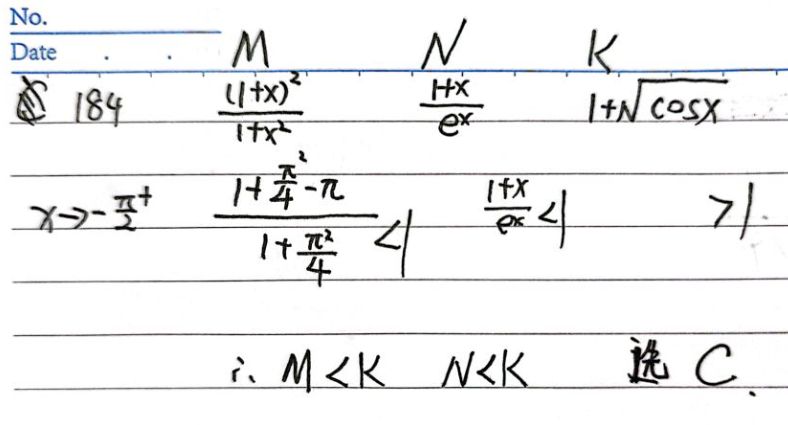 No.
Date . .
M N K
184 (1+x)²/(1+x²) (1+x)/eˣ 1+√cosx
x→-π/2⁺ (1+π²/4-π)/(1+π²/4) <1 (1+x)/eˣ <1 >1.
∴ M<K N<K 选 C.